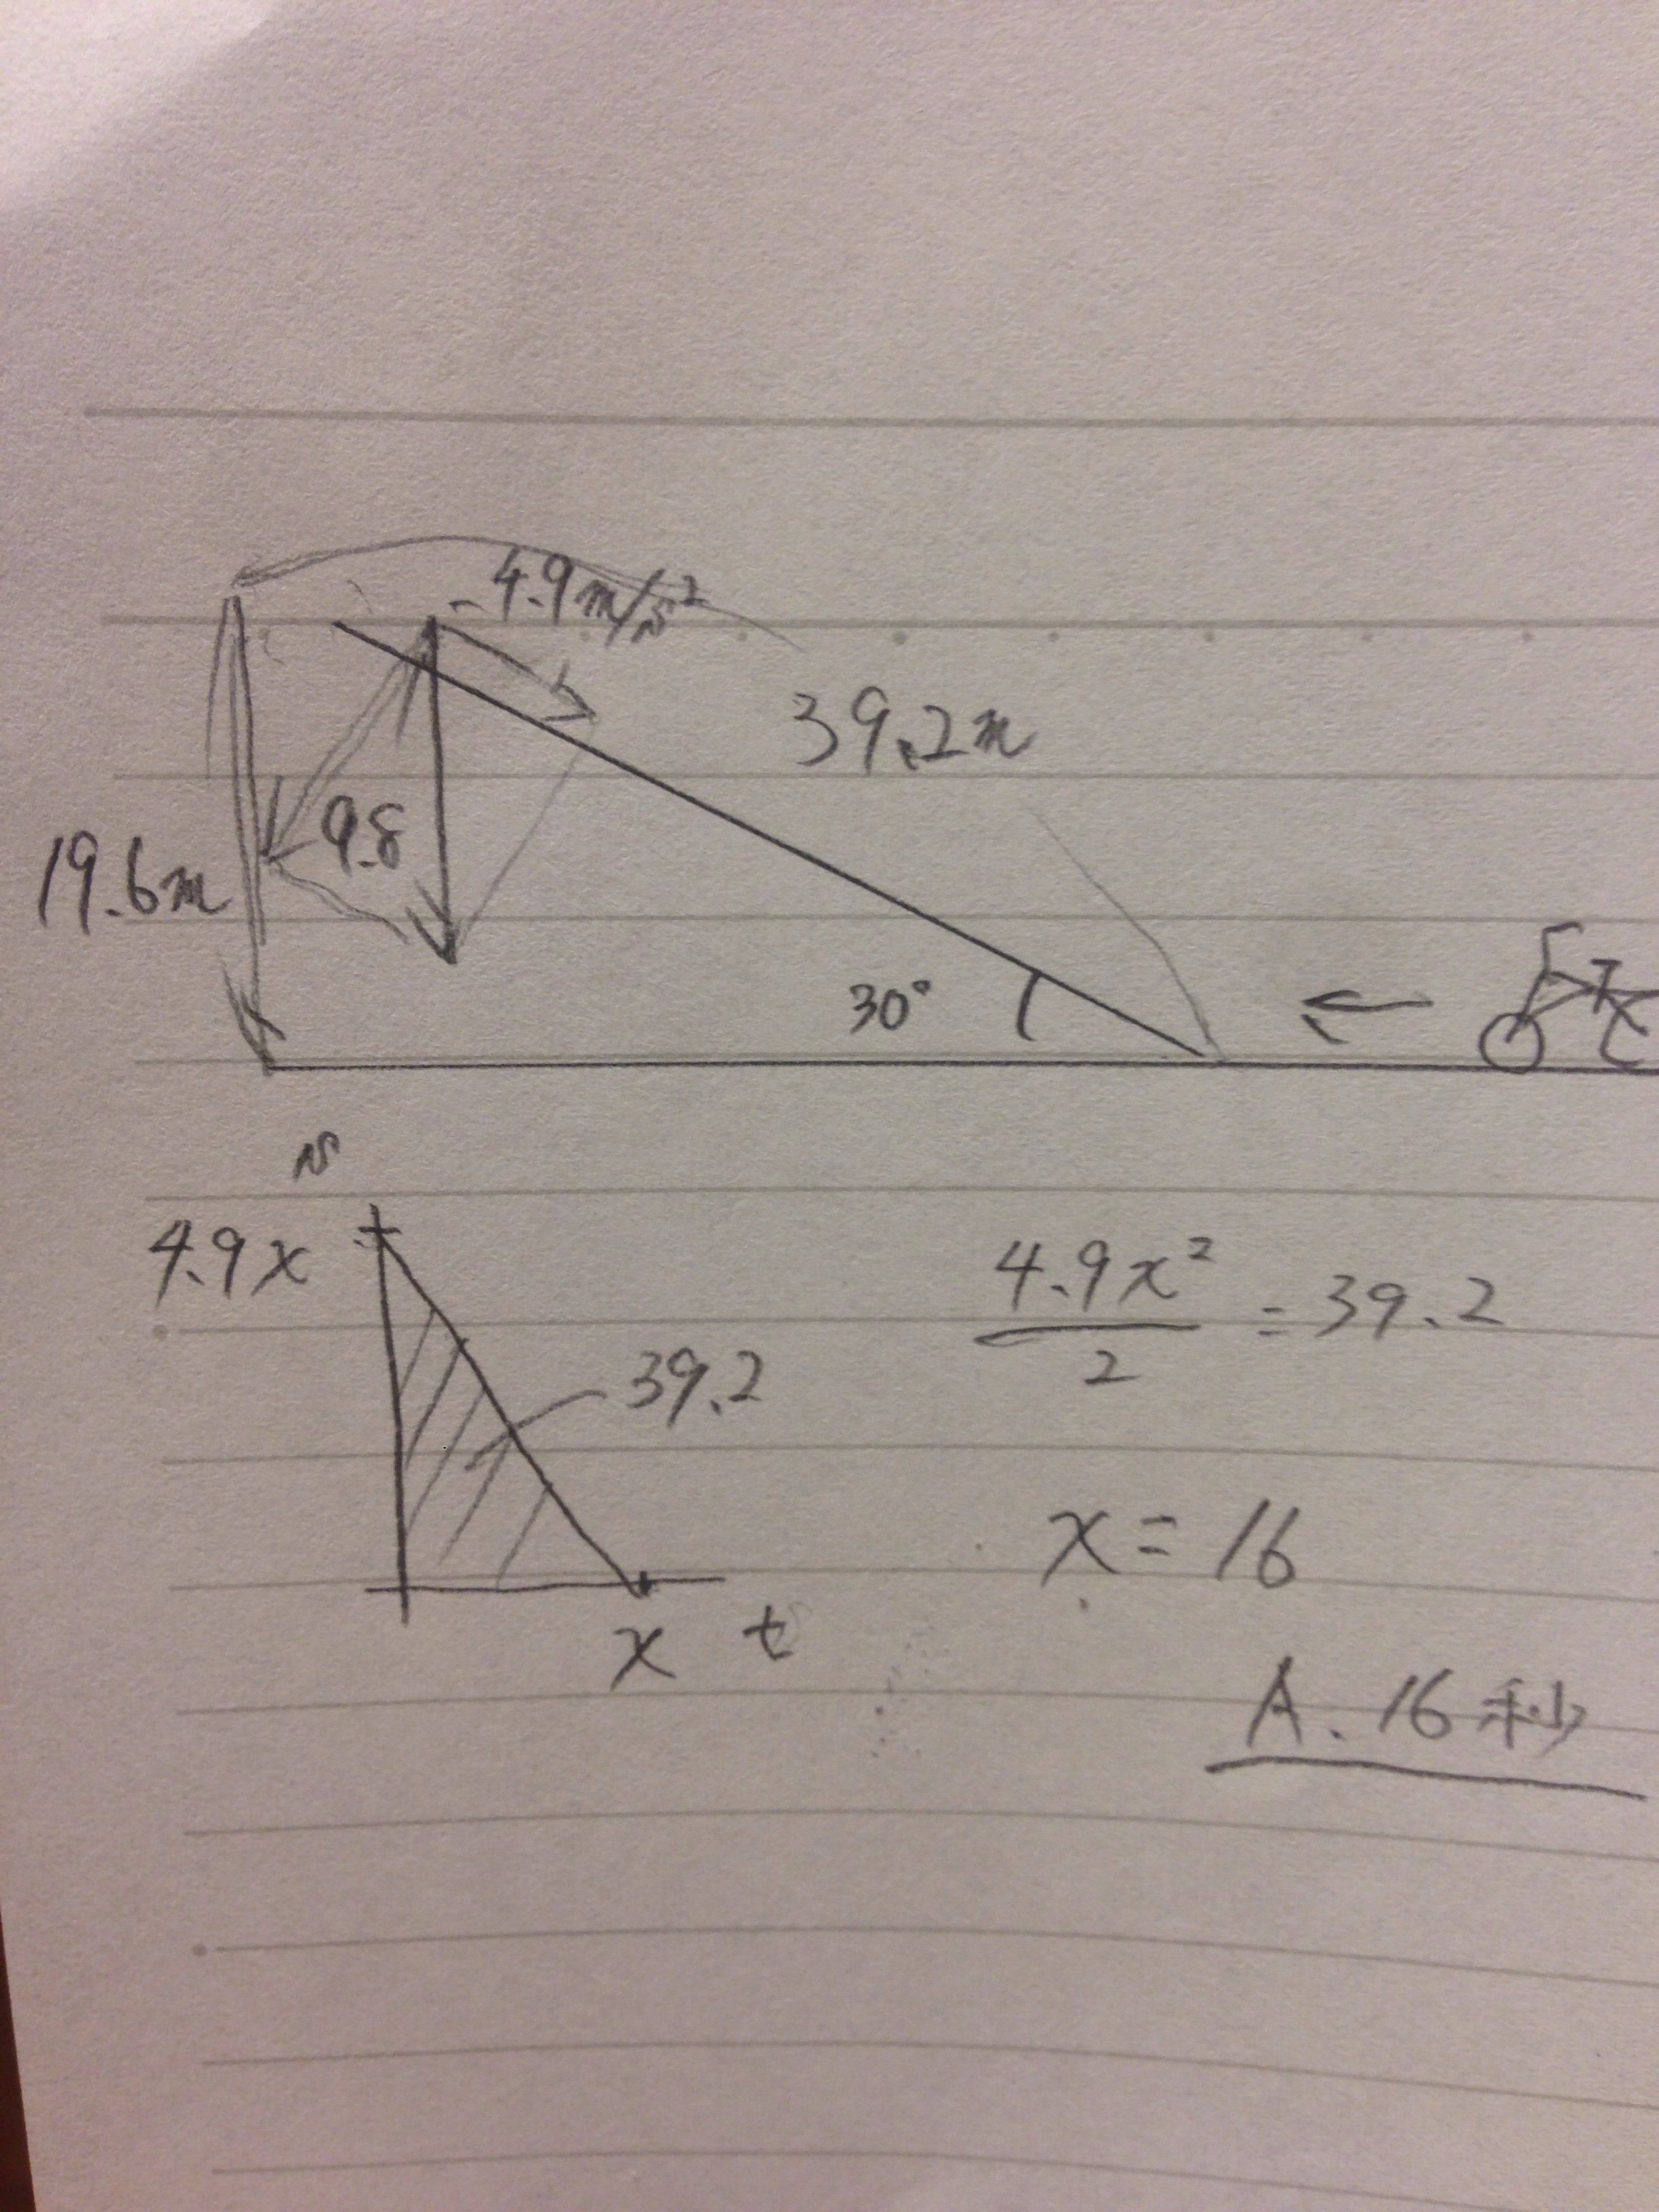 -4.9m/s²
39.2m
9.8
19.6m
30°
v
4.9x
39.2
x
t
4.9x²/2 = 39.2
x = 16
A. 16秒